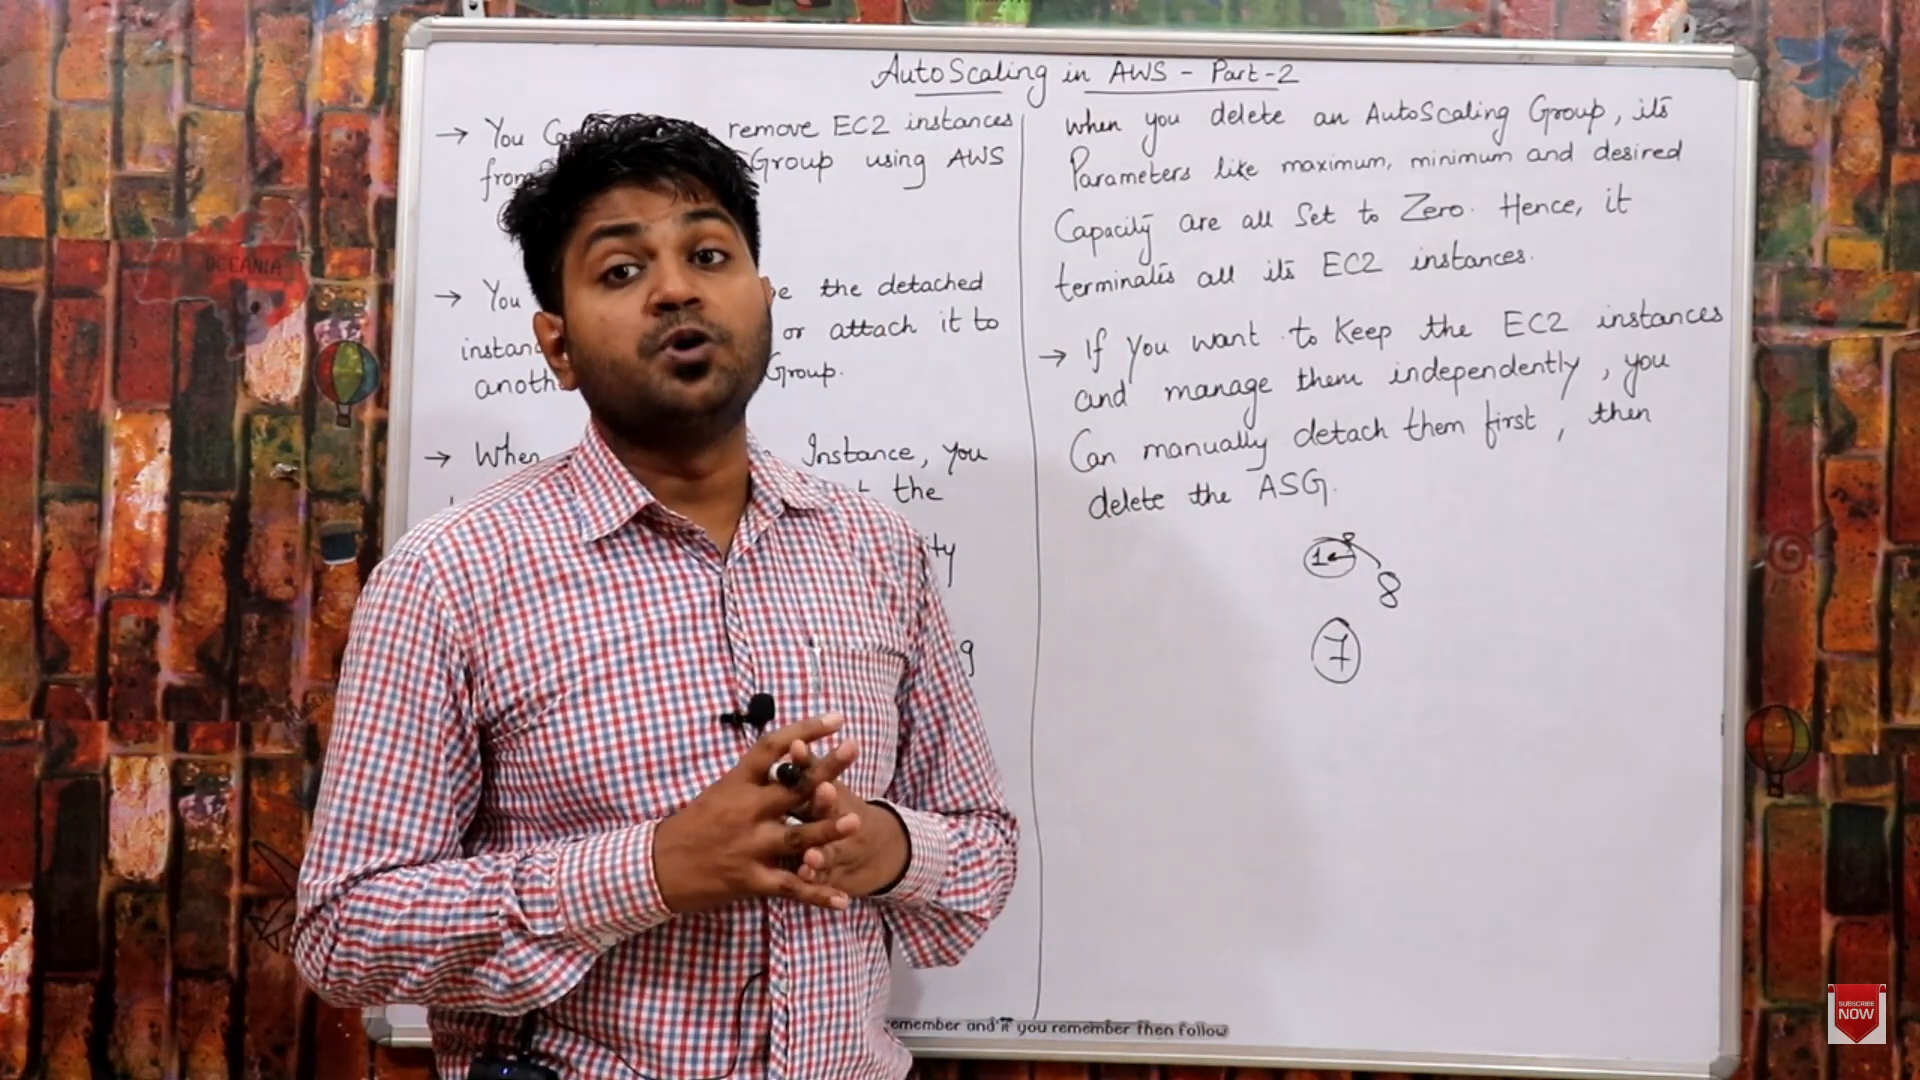 AutoScaling in AWS - Part-2
→ You remove EC2 instances
from Group using AWS
→ You the detached
or attach it to
Group.
→ When Instance, you
the
when you delete an AutoScaling Group, its
Parameters like maximum, minimum and desired
Capacity are all Set to Zero. Hence, it
terminates all its EC2 instances.
→ If you want to Keep the EC2 instances
and manage them independently, you
Can manually detach them first, then
delete the ASG.
8
7
OCEANIA
you remember then follow
SUBSCRIBE
NOW